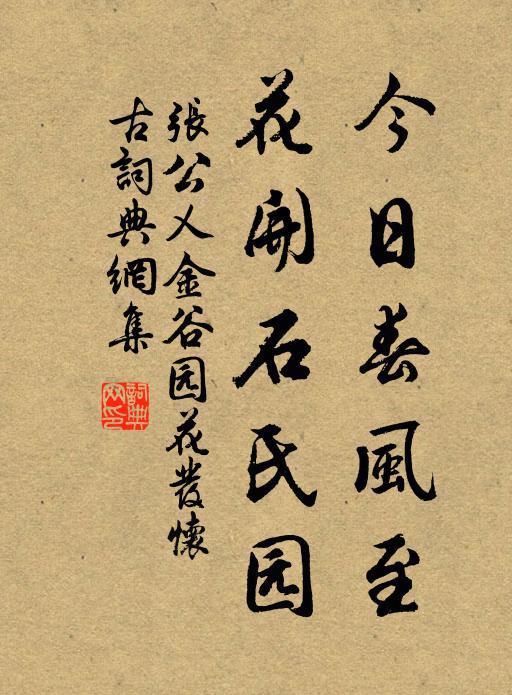 今日春風至
花開石氏园
張公乂金谷园花發懷
古詞典網集
詞典
网印